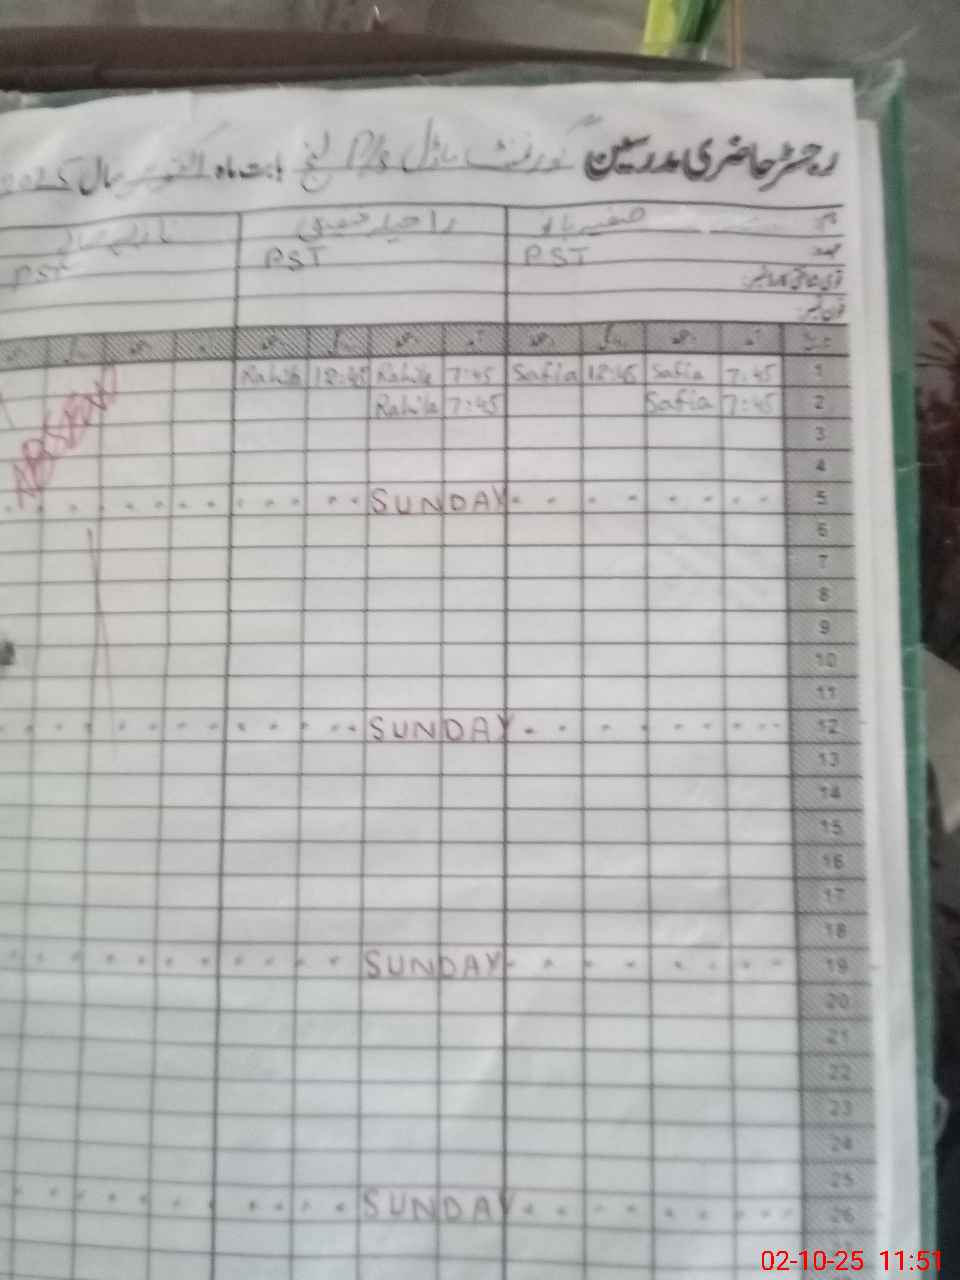 رجسٹر حاضری مدرسین گورنمنٹ ماڈل P/S بابت ماہ اکتوبر سال 2025
نام صفیہ بانو
عہدہ PST PST PST
فون نمبر
1 7:45 Safia 12:45 Safia 7:45 Rahila 12:45 Rahila
2 7:45 Safia 7:45 Rahila
ABSENT
3
4
5 SUNDAY
6
7
8
9
10
11
12 SUNDAY
13
14
15
16
17
18
19 SUNDAY
20
21
22
23
24
25
26 SUNDAY
02-10-25 11:51